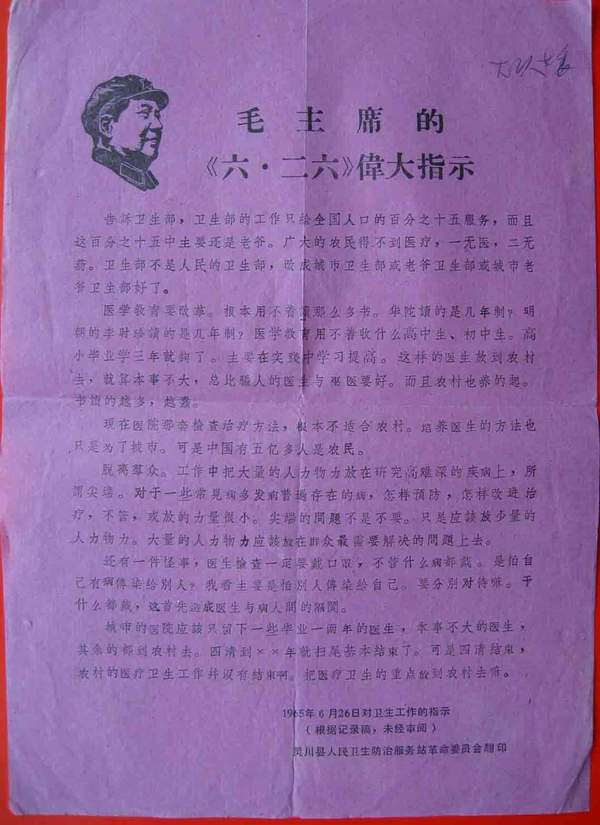 毛主席的
《六·二六》偉大指示
告訴卫生部,卫生部的工作只给全国人口的百分之十五服务,而且
这百分之十五中主要还是老爷。广大的农民得不到医疗,一无医,二无
药。卫生部不是人民的卫生部,改成城市卫生部或老爷卫生部或城市老
爷卫生部好了。
医学教育要改革。根本用不着讀那么多书。华陀讀的是几年制?明
朝的李时珍讀的是几年制?医学教育用不着收什么高中生、初中生。高
小毕业学三年就夠了。主要在实践中学习提高。这样的医生放到农村
去,就算本事不大,总比騙人的医生与巫医要好。而且农村也养的起。
书讀的越多,越蠢。
现在医院那套检查治疗方法,根本不适合农村。培养医生的方法也
只是为了城市。可是中国有五亿多人是农民。
脱离羣众。工作中把大量的人力物力放在研究高难深的疾病上,所
谓尖端。对于一些常見病多发病普遍存在的病,怎样预防,怎样改进治
疗,不管,或放的力量很小。尖端的問题不是不要。只是应該放少量的
人力物力。大量的人力物力应該放在群众最需要解决的問題上去。
还有一件怪事,医生检查一定要戴口罩,不管什么病都戴。是怕自
己有病傳染给別人?我看主要是怕別人傳染给自己。要分別对待嘛。干
什么都戴,这首先造成医生与病人間的隔閡。
城市的医院应該只留下一些毕业一両年的医生,本事不大的医生,
其余的都到农村去。四清到××年就扫尾基本结束了。可是四清结束,
农村的医疗卫生工作并沒有结束啊。把医疗卫生的重点放到农村去嘛。
1965年6月26日对卫生工作的指示
(根据记录稿,未经审阅)
灵川县人民卫生防治服务站革命委员会翻印